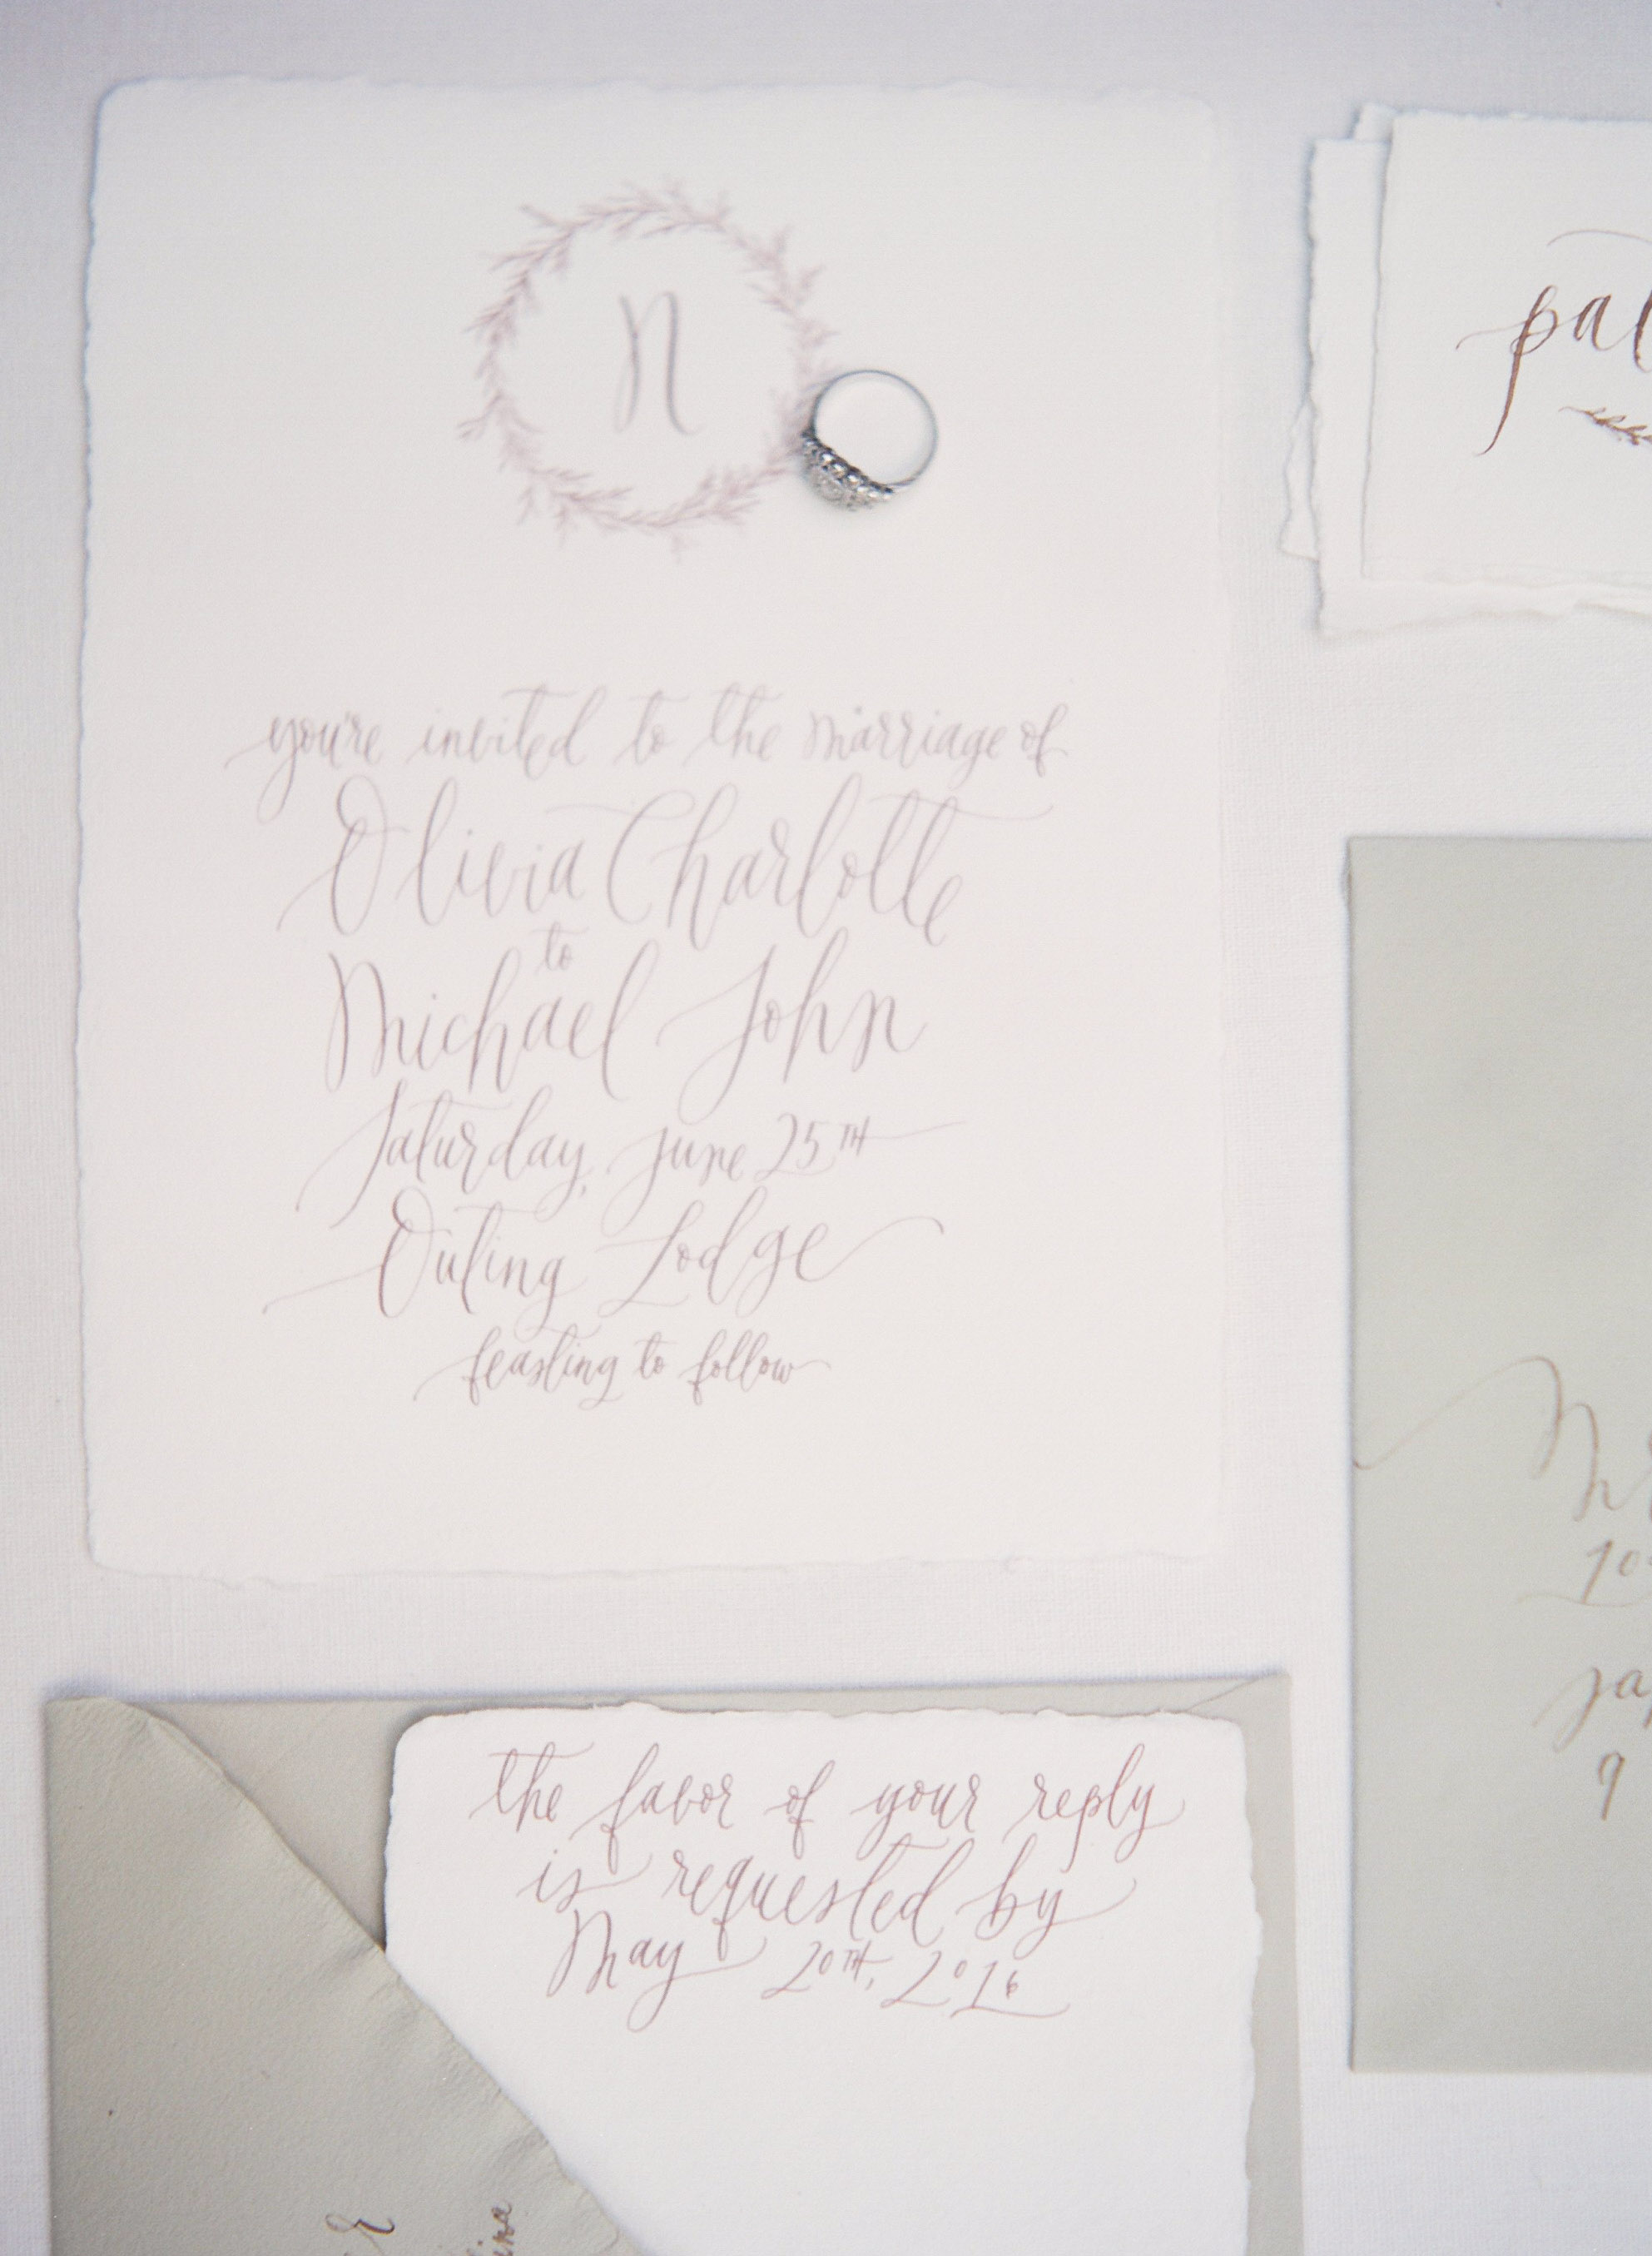 n
you're invited to the marriage of
Olivia Charlotte
to
Michael John
Saturday, June 25TH
Outing Lodge
feasting to follow
the favor of your reply
is requested by
May 20TH, 2016